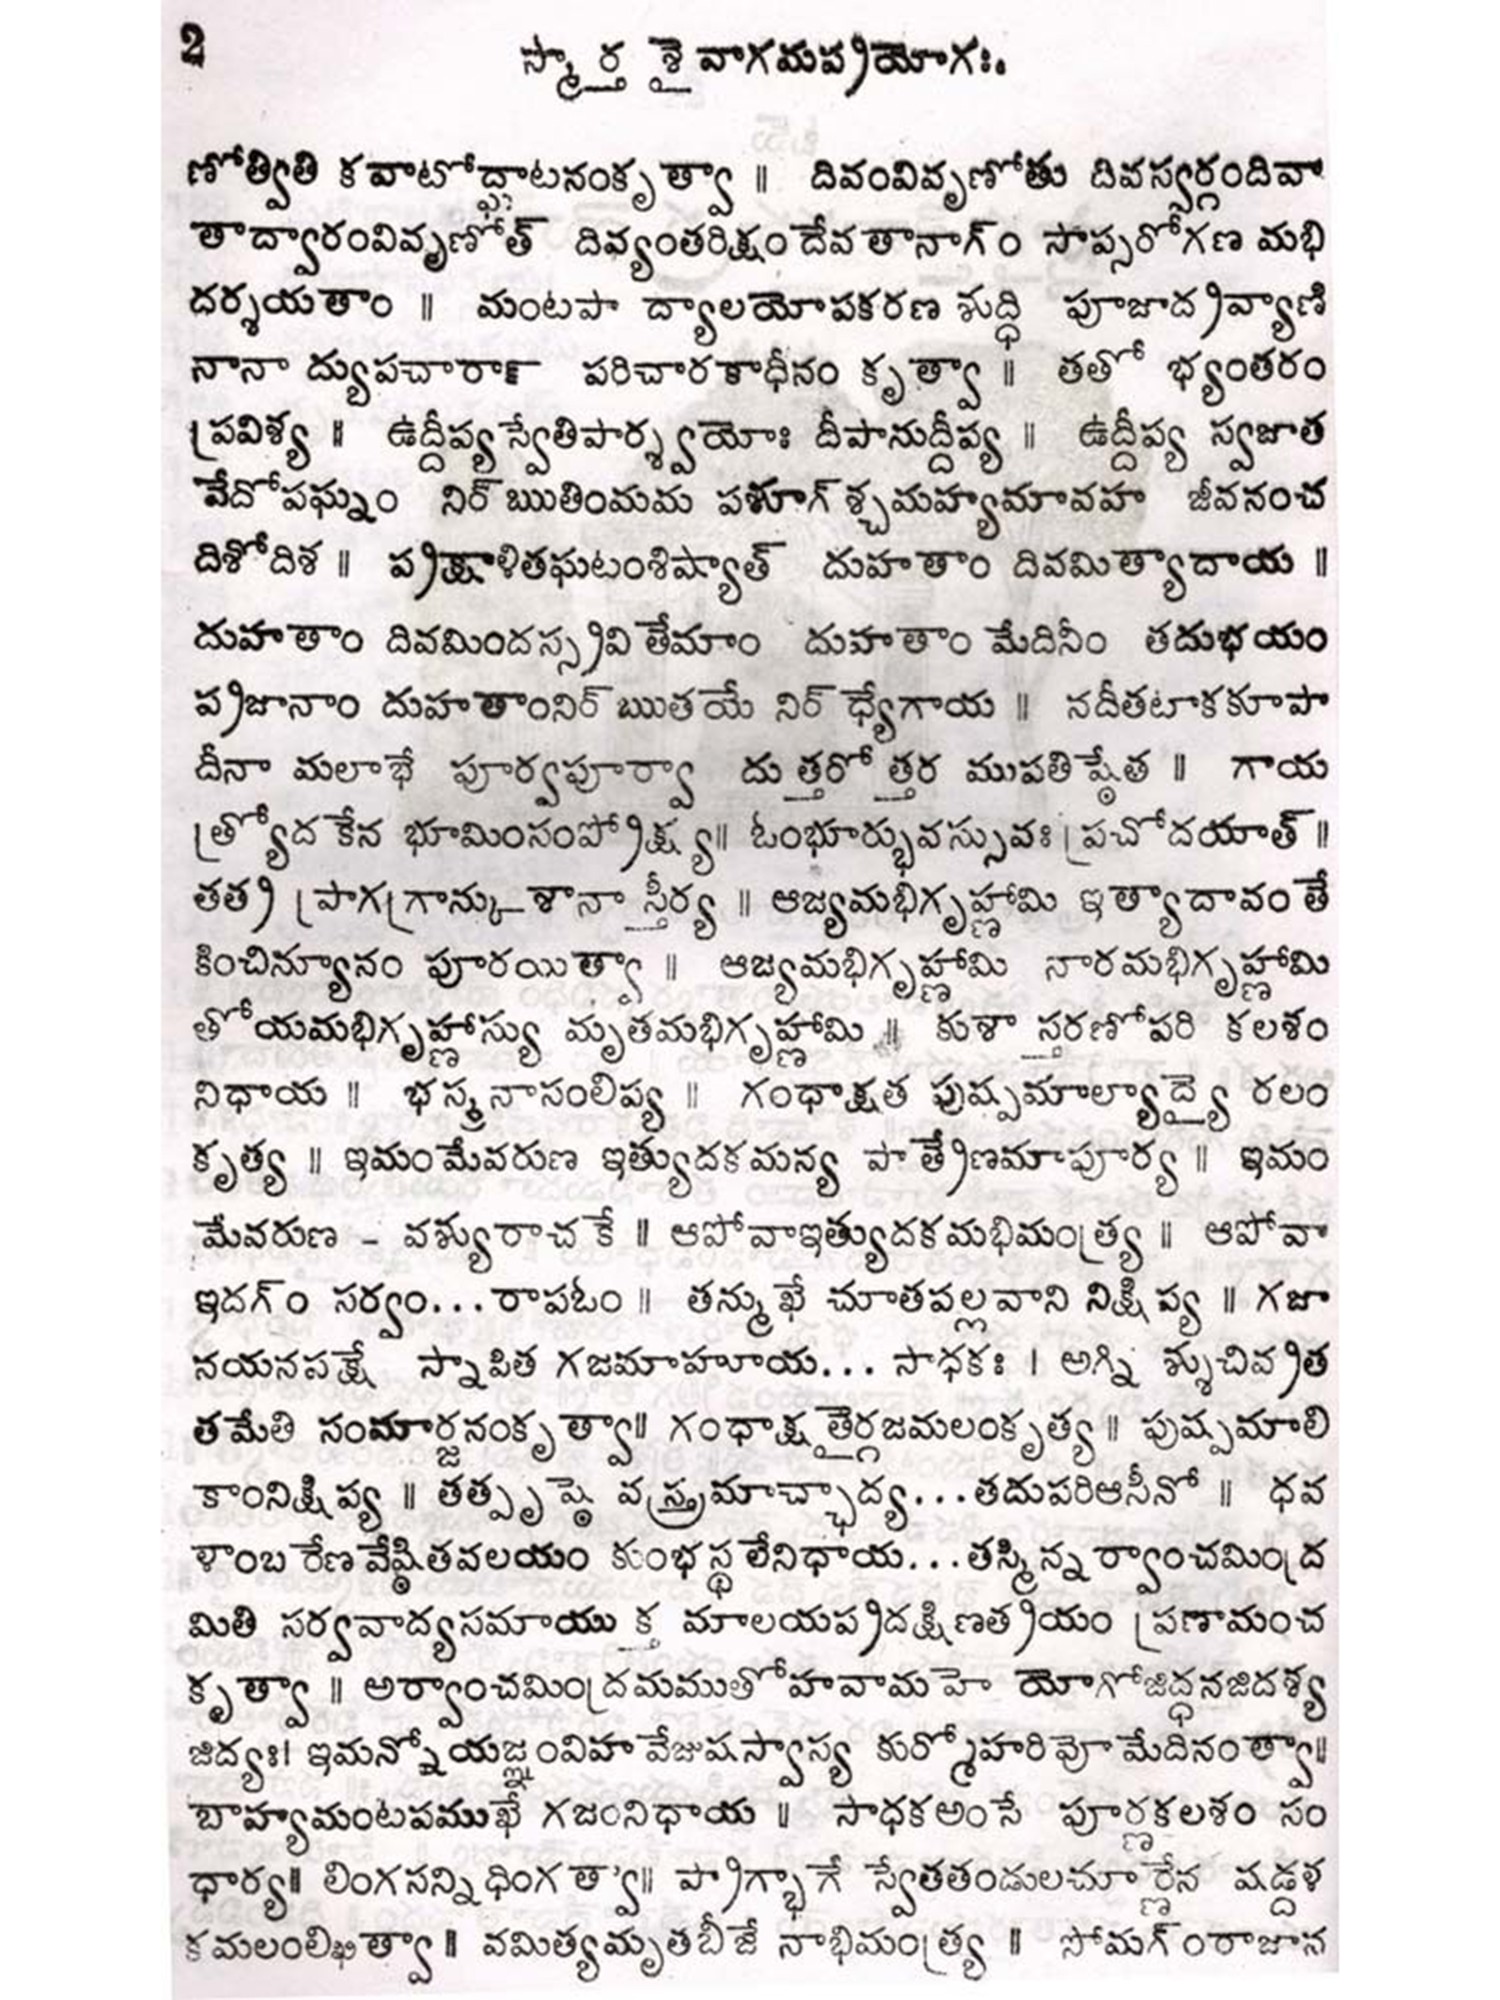 2
స్మార్త శైవాగమప్రయోగః.
ణోత్వితి కవాటోద్ఘాటనంకృత్వా ॥ దివంవివృణోతు దివస్వర్గందివా
తాద్వారంవివృణోత్ దివ్యంతరిక్షందేవతానాగ్ం సాప్సరోగణ మభి
దర్శయతాం ॥ మంటపా ద్యాలయోపకరణ శుద్ధి పూజాద్రవ్యాణి
నానా ద్యుపచారాణ్ పరిచారకాధీనం కృత్వా ॥ తతో భ్యంతరం
ప్రవిశ్య ॥ ఉద్దీప్యస్వేతిపార్శ్వయోః దీపానుద్దీప్య ॥ ఉద్దీప్య స్వజాత
వేదోపఘ్నం నిర్ ఋతింమమ పశూగ్ శ్చమహ్యమావహ జీవనంచ
దిశోదిశ ॥ ప్రక్షాళితఘటంశిష్యాత్ దుహతాం దివమిత్యాదాయ ॥
దుహతాం దివమిందస్స్రవితేమాం దుహతాం మేదినీం తదుభయం
ప్రజానాం దుహతాంనిర్ ఋతయే నిర్ ధ్యేగాయ ॥ నదీతటాకకూపా
దీనా మలాభే పూర్వపూర్వా దుత్తరోత్తర ముపతిష్ఠేత ॥ గాయ
త్ర్యోదకేన భూమింసంప్రోక్ష్య॥ ఓంభూర్భువస్సువః ప్రచోదయాత్ ॥
తత్ర ప్రాగగ్రాన్కుశానాస్తీర్య ॥ ఆజ్యమభిగృహ్ణామి ఇత్యాదావంతే
కించిన్యూనం పూరయిత్వా ॥ ఆజ్యమభిగృహ్ణామి నారమభిగృహ్ణామి
తోయమభిగృహ్ణాస్యు మృతమభిగృహ్ణామి ॥ కుశాస్తరణోపరి కలశం
నిధాయ ॥ భస్మనాసంలిప్య ॥ గంధాక్షత పుష్పమాల్యాద్యై రలం
కృత్య ॥ ఇమంమేవరుణ ఇత్యుదకమన్య పాత్రేణమాపూర్య ॥ ఇమం
మేవరుణ - వశ్యురాచకే ॥ ఆపోవాఇత్యుదకమభిమంత్ర్య ॥ ఆపోవా
ఇదగ్ం సర్వం...రాపఓం ॥ తన్ముఖే చూతపల్లవాని నిక్షిప్య ॥ గజా
నయనపక్షే స్నాపిత గజమాహూయ... సాధకః । అగ్ని శ్శుచివ్రత
తమేతి సంమార్జనంకృత్వా॥ గంధాక్షతైర్గజమలంకృత్య ॥ పుష్పమాలి
కాంనిక్షిప్య ॥ తత్పృష్ఠె వస్త్రమాచ్ఛాద్య...తదుపరిఆసీనో ॥ ధవ
ళాంబరేణవేష్ఠితవలయం కుంభస్థలేనిధాయ...తస్మిన్నర్వాంచమింద్ర
మితి సర్వవాద్యసమాయుక్త మాలయప్రదక్షిణత్రయం ప్రణామంచ
కృత్వా ॥ అర్వాంచమింద్రమముతోహవామహె యోగోజిద్ధనజిదశ్వ
జిద్యః। ఇమన్నోయజ్ఞంవిహవేజుషస్వాస్య కుర్మోహరివో మేదినంత్వా॥
బాహ్యమంటపముఖే గజంనిధాయ ॥ సాధకఅంసే పూర్ణకలశం సం
ధార్య॥ లింగసన్నిధింగత్వా॥ ప్రాగ్భాగే స్వేతతండులచూర్ణేన షడ్దళ
కమలంలిఖిత్వా॥ వమిత్యమృతబీజే నాభిమంత్ర్య ॥ సోమగ్ంరాజాన